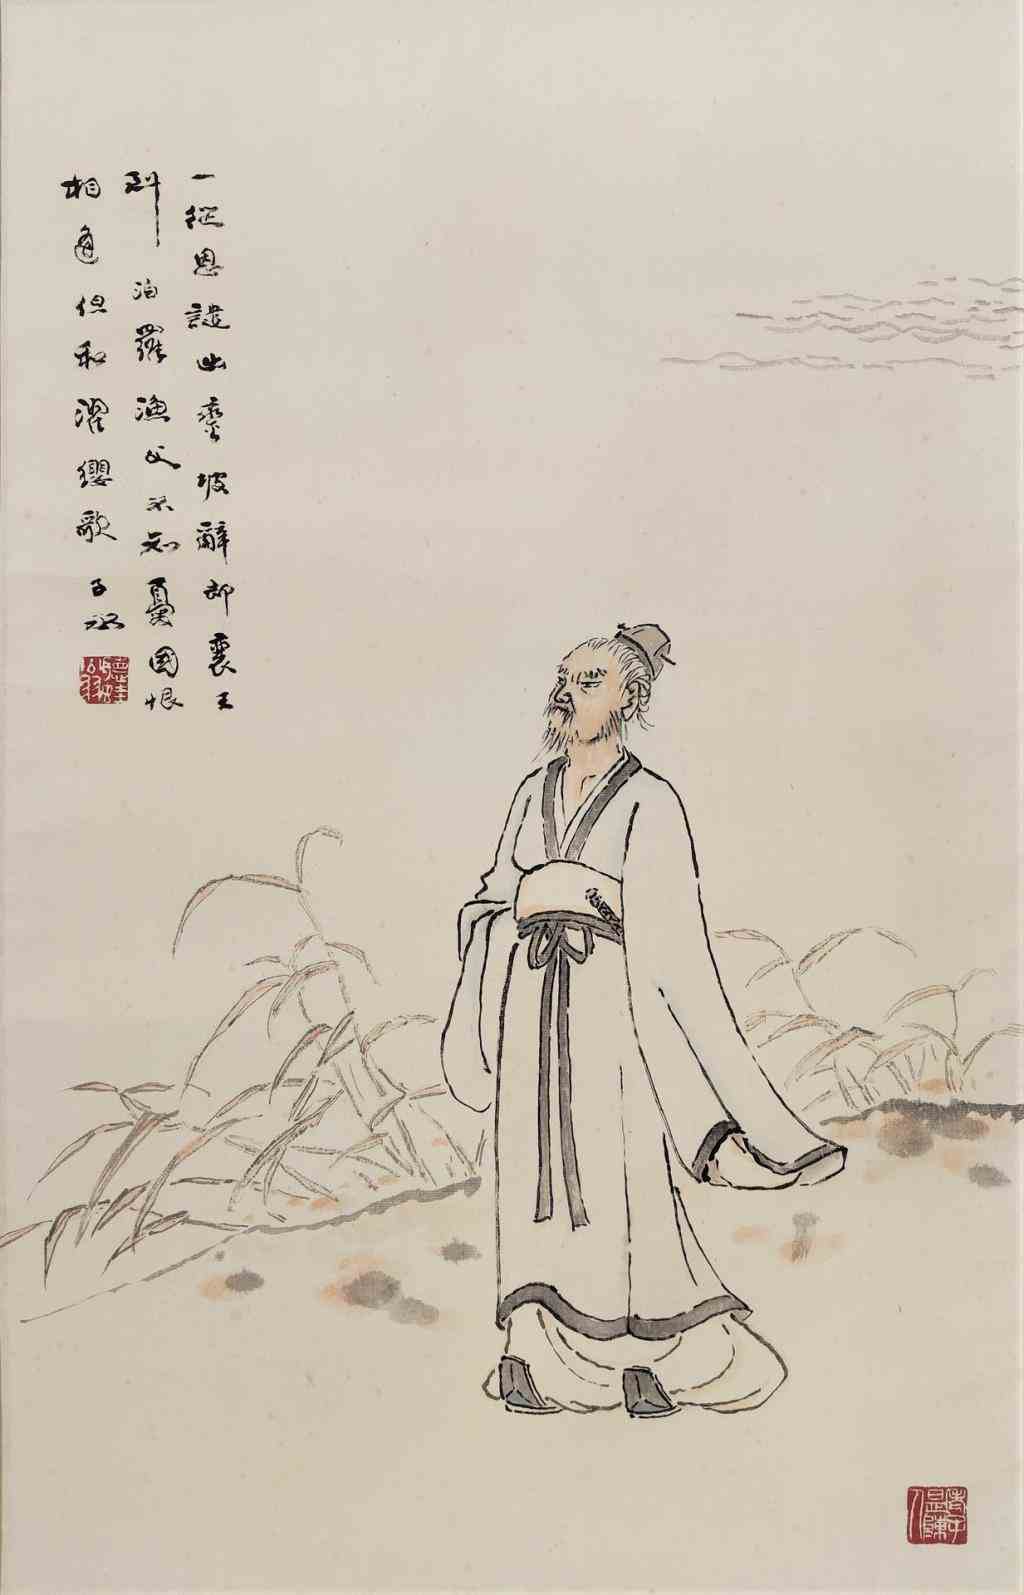 一從恩譴出鑾坡辭却襄王
到汨羅漁父不知憂國恨
相逢但和濯纓歌 子